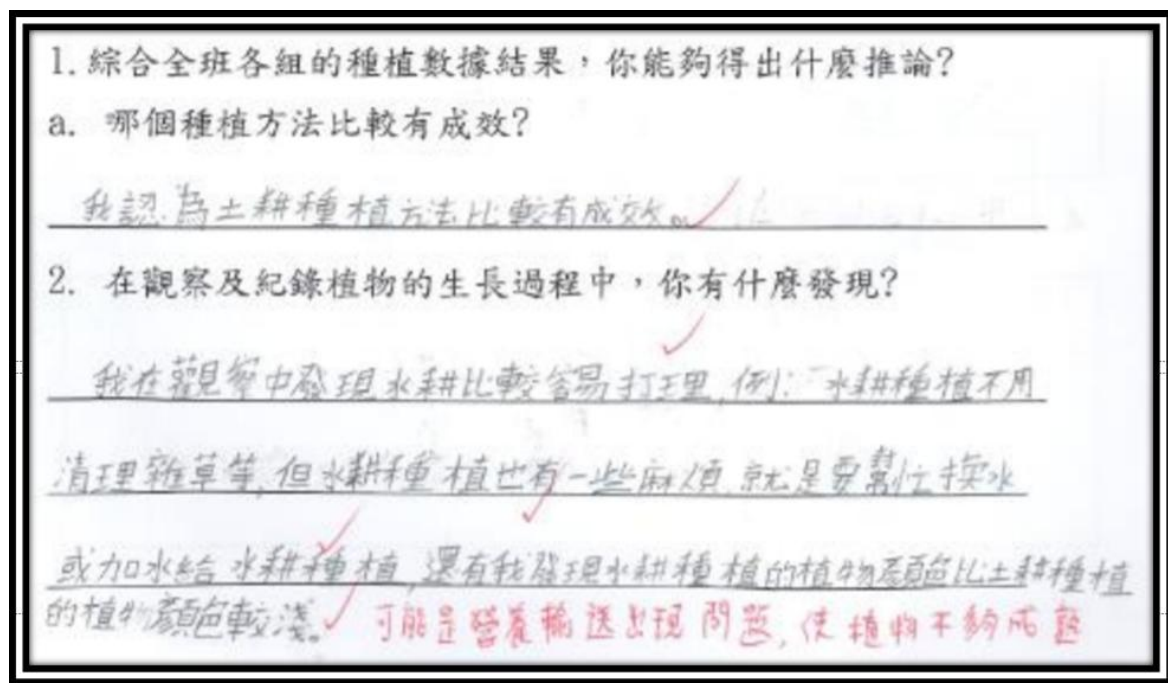 1. 綜合全班各組的種植數據結果，你能夠得出什麼推論?
a. 哪個種植方法比較有成效?
我認為土耕種植方法比較有成效。
2. 在觀察及紀錄植物的生長過程中，你有什麼發現?
我在觀察中發現水耕比較容易打理,例:水耕種植不用
清理雜草等,但水耕種植也有一些麻煩,就是要幫忙換水
或加水給水耕種植,還有我發現水耕種植的植物顏色比土耕種植
的植物顏色較淺。可能是營養輸送出現問題,使植物不夠成熟